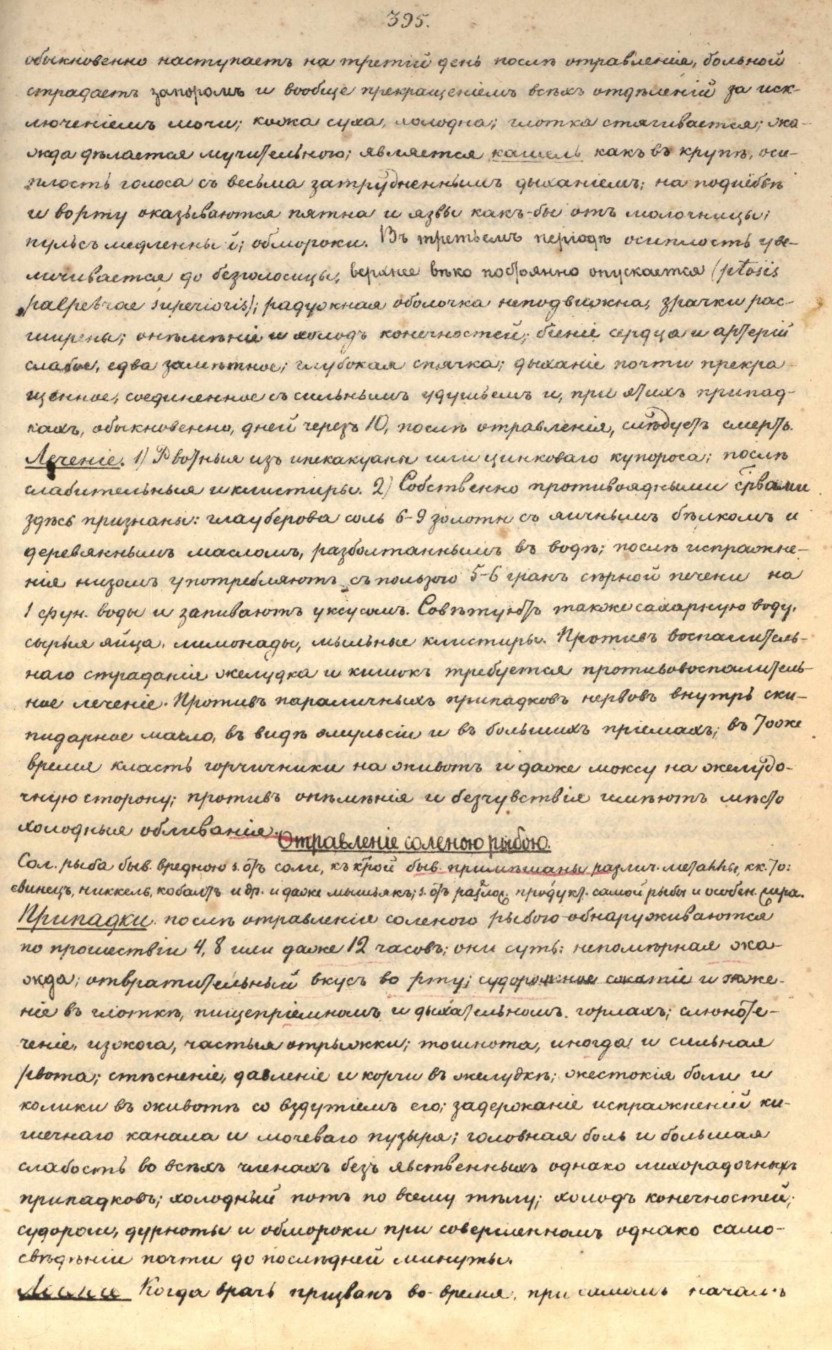 395.
обыкновенно наступаетъ на третій день послѣ отравленія, больной
страдаетъ запоромъ и вообще прекращеніемъ всѣхъ отдѣленій за иск-
люченіемъ мочи; кожа суха, холодна; глотка стягивается; жа-
жда дѣлается мучительною; является кашель какъ въ крупѣ, оси-
плость голоса съ весьма затрудненнымъ дыханіемъ; на поднёбѣ
и во рту оказываются пятна и язвы какъ-бы отъ молочницы;
пульсъ медленный; обмороки. Въ третьемъ періодѣ осиплость уве-
личивается до безголосицы, верхнее вѣко постоянно опускается (ptosis
palpebrae superioris); радужная оболочка неподвижна, зрачки рас-
ширены; онѣмѣніе и холодъ конечностей; біеніе сердца и артерій
слабое, едва замѣтное; глубокая спячка; дыханіе почти прекра-
щенное, соединенное съ сильнымъ удушьемъ и, при этихъ припад-
кахъ, обыкновенно, дней черезъ 10, послѣ отравленія, слѣдуетъ смерть.
Леченіе. 1) Рвотныя изъ ипекакуаны или цинковаго купороса; послѣ
слабительныя и клистиры. 2) Собственно противоядными средствами
здѣсь признаны: глауберова соль 6-9 золотн съ яичнымъ бѣлкомъ и
деревяннымъ масломъ, разболтаннымъ въ водѣ; послѣ испражне-
нія низомъ употребляютъ съ пользою 5-6 гранъ сѣрной печени на
1 фун. воды и запиваютъ уксусомъ. Совѣтуютъ также сахарную воду,
сырыя яйца, лимонады, мыльные клистиры. Противъ воспалитель-
наго страданія желудка и кишокъ требуется противовоспалитель-
ное леченіе. Противъ параличныхъ припадковъ нервовъ внутрь ски-
пидарное масло, въ видѣ эмульсіи и въ большихъ пріемахъ; въ тоже
время класть горчичники на животъ и даже моксу на желудо-
чную сторону; противъ онѣмѣнія и безчувствія имѣютъ мѣсто
холодныя обливанія.
Отравленіе соленою рыбою.
Сол. рыба быв. вредною 1. отъ соли, къ крой быв. примѣшаны различ. металлы, кк. то:
свинецъ, никкель, кобальтъ и др. и даже мышьякъ; 2. отъ разлож. продукт. самой рыбы и особен.
Припадки послѣ отравленія соленою рыбою обнаруживаются
по прошествіи 4, 8 или даже 12 часовъ; они суть: непомѣрная жа-
жда; отвратительный вкусъ во рту; судорожное сжатіе и жже-
ніе въ глоткѣ, пищепріемномъ и дыхательномъ горлахъ; слюноте-
ченіе, изжога, частыя отрыжки; тошнота, иногда и сильная
рвота; стѣсненіе, давленіе и корчи въ желудкѣ; жестокія боли и
колики въ животѣ со вздутіемъ его; задержаніе испражненій ки-
шечнаго канала и мочеваго пузыря; головная боль и большая
слабость во всѣхъ членахъ безъ явственныхъ однако лихорадочныхъ
припадковъ; холодный потъ по всему тѣлу; холодъ конечностей;
судороги, дурноты и обмороки при совершенномъ однако само-
свѣдѣніи почти до послѣдней минуты.
Когда врачъ призванъ во-время, при самомъ началѣ